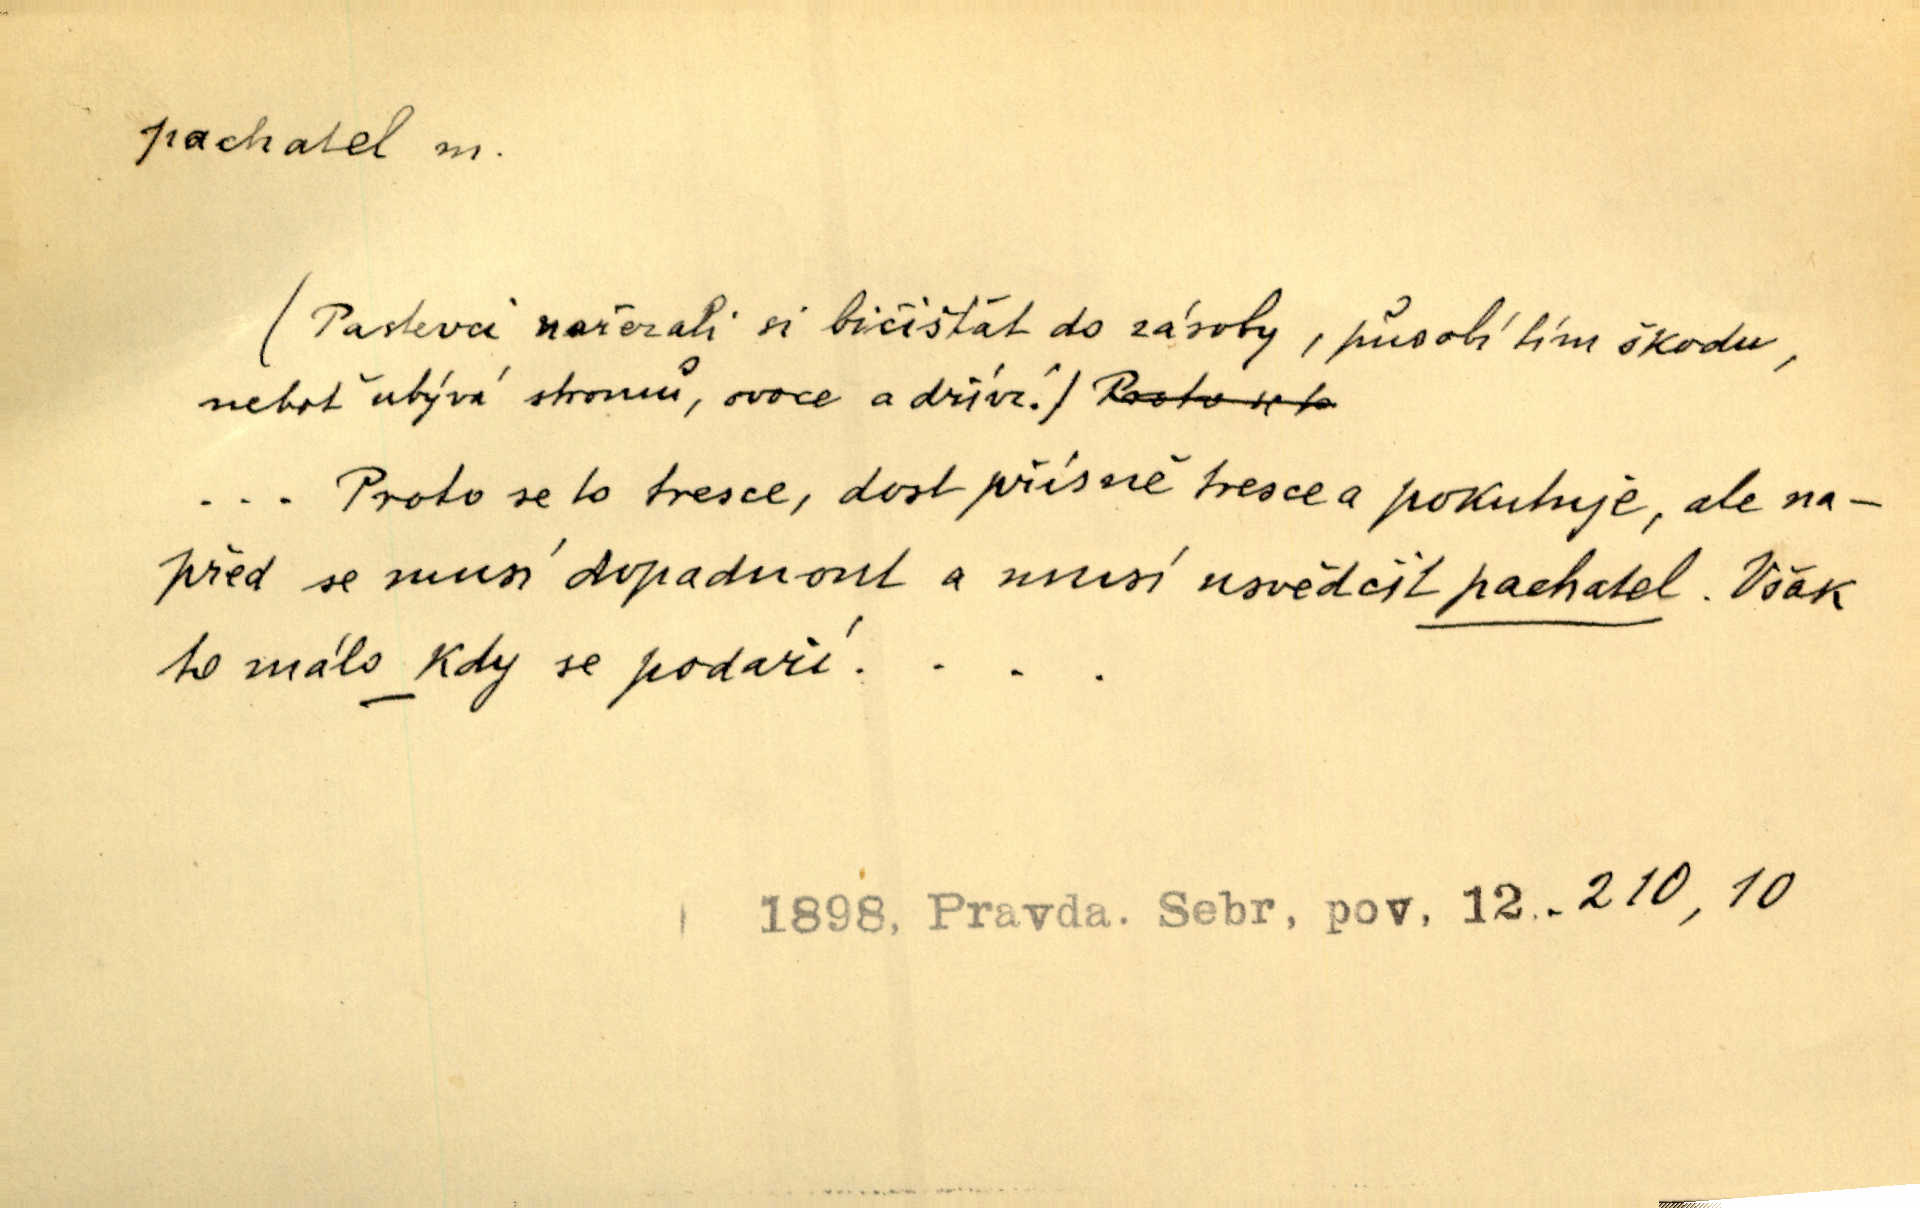 pachatel m.
(Pastevci nařezali si bičišťat do zásoby, působí tím škodu,
neboť ubývá stromů, ovoce a dříví.) Proto se to
... Proto se to tresce, dost přísně tresce a pokutuje, ale na-
před se musí dopadnout a musí usvědčit pachatel. Však
to málo kdy se podaří. . . .
1898, Pravda. Sebr, pov, 12.. 210, 10